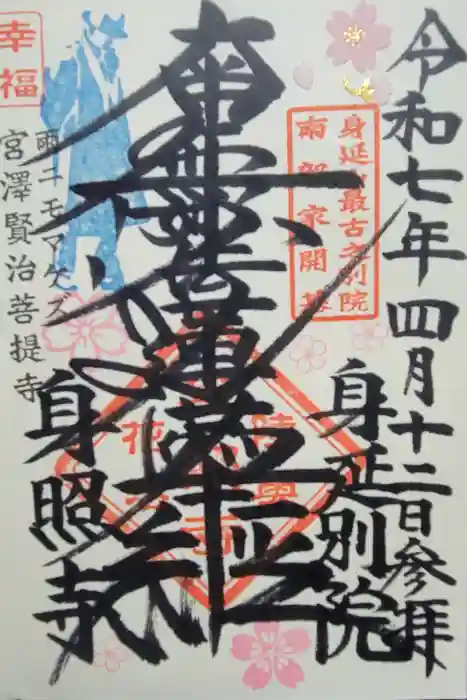 令和七年四月十二日参拝
身延山最古之別院
南部家開基
身延別院
南無妙法蓮華経
幸福
雨ニモマケズ
宮澤賢治菩提寺
身照寺
陸奥
花巻